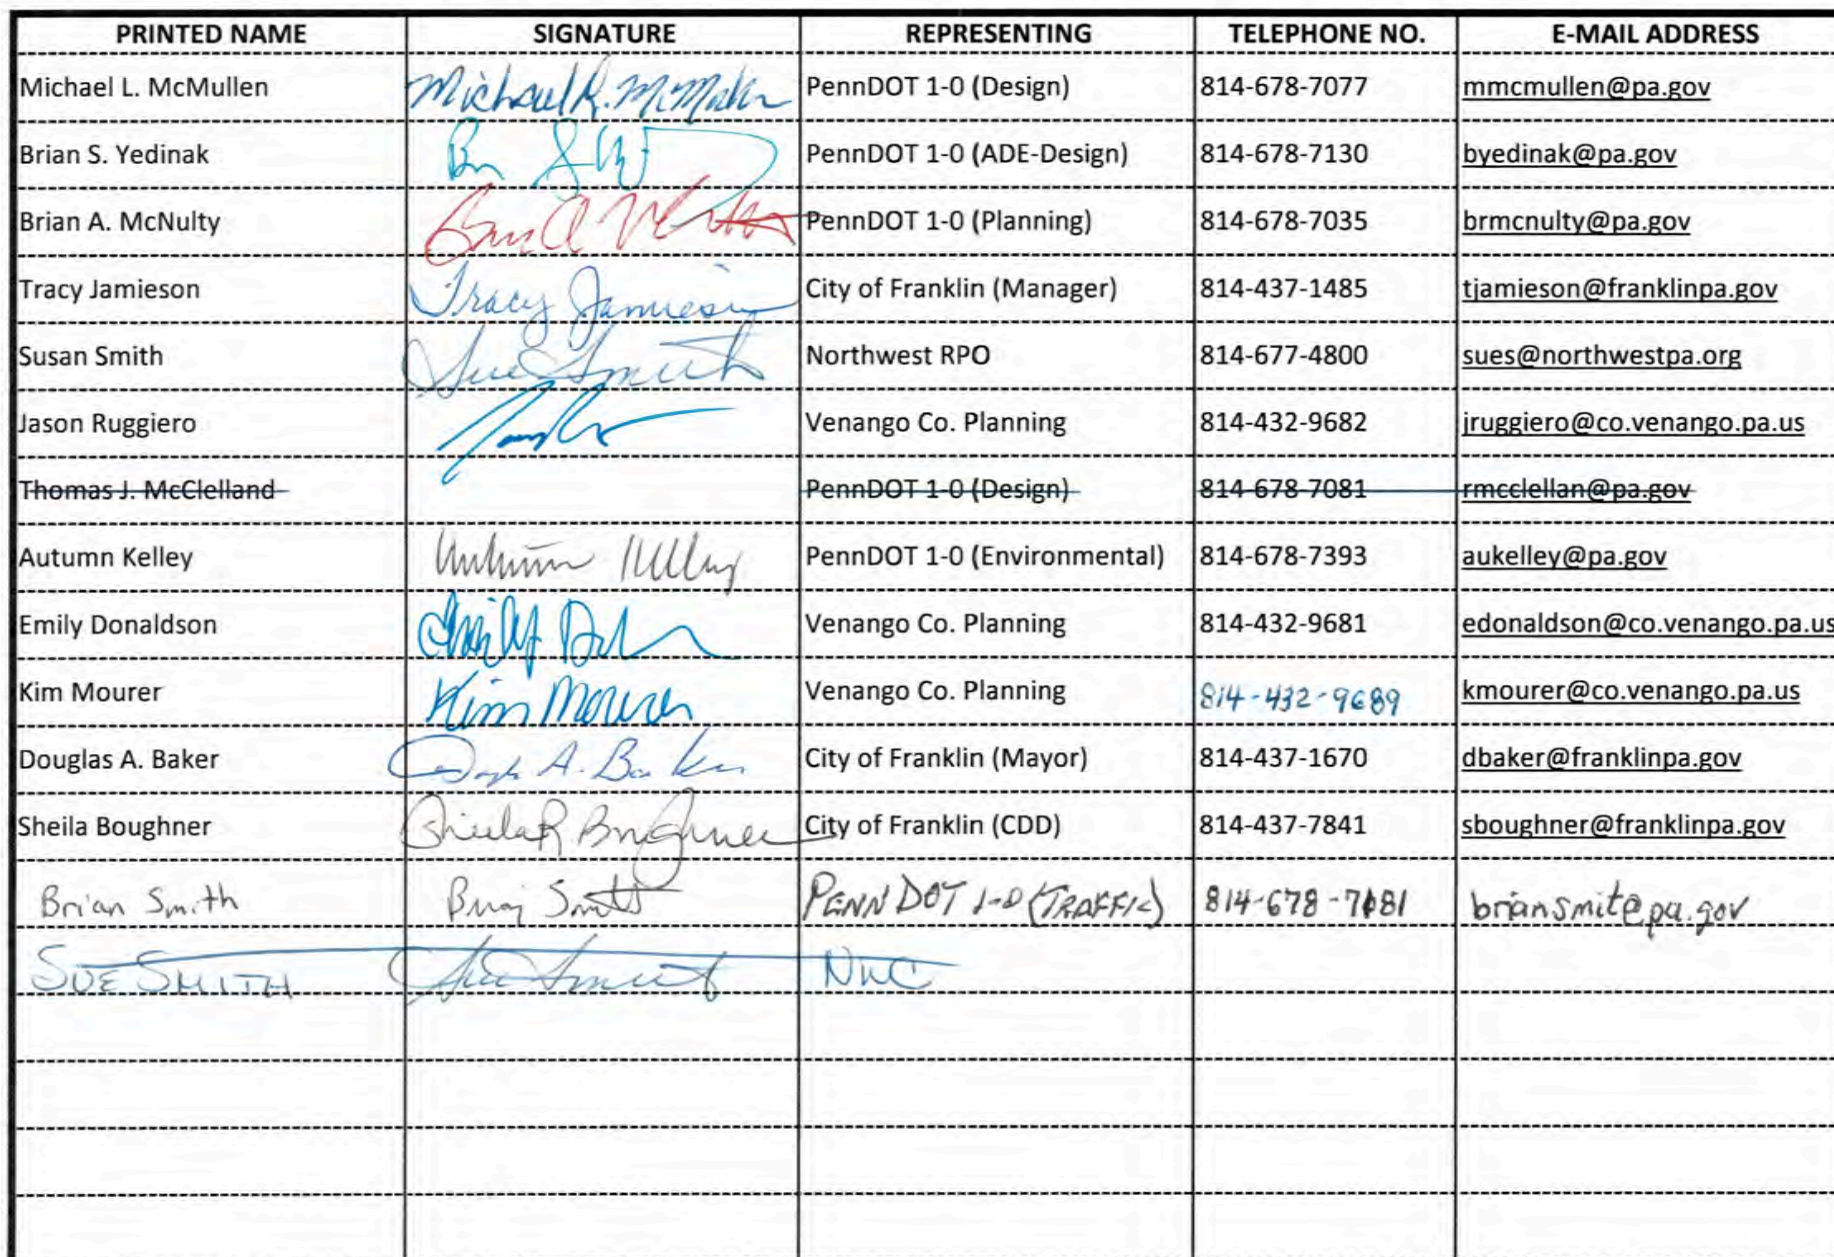 PRINTED NAME SIGNATURE REPRESENTING TELEPHONE NO. E-MAIL ADDRESS
Michael L. McMullen Michael L. McMullen PennDOT 1-0 (Design) 814-678-7077 mmcmullen@pa.gov
Brian S. Yedinak PennDOT 1-0 (ADE-Design) 814-678-7130 byedinak@pa.gov
Brian A. McNulty PennDOT 1-0 (Planning) 814-678-7035 brmcnulty@pa.gov
Tracy Jamieson Tracy Jamieson City of Franklin (Manager) 814-437-1485 tjamieson@franklinpa.gov
Susan Smith Sue Smith Northwest RPO 814-677-4800 sues@northwestpa.org
Jason Ruggiero Venango Co. Planning 814-432-9682 jruggiero@co.venango.pa.us
Thomas J. McClelland PennDOT 1-0 (Design) 814-678-7081 rmcclellan@pa.gov
Autumn Kelley Autumn Kelley PennDOT 1-0 (Environmental) 814-678-7393 aukelley@pa.gov
Emily Donaldson Venango Co. Planning 814-432-9681 edonaldson@co.venango.pa.us
Kim Mourer Kim Mourer Venango Co. Planning 814-432-9689 kmourer@co.venango.pa.us
Douglas A. Baker A. Baker City of Franklin (Mayor) 814-437-1670 dbaker@franklinpa.gov
Sheila Boughner Sheila R Boughner City of Franklin (CDD) 814-437-7841 sboughner@franklinpa.gov
Brian Smith Brian Smith PENNDOT 1-0 (TRAFFIC) 814-678-7181 briansmit@pa.gov
SUE SMITH Sue Smith NWC